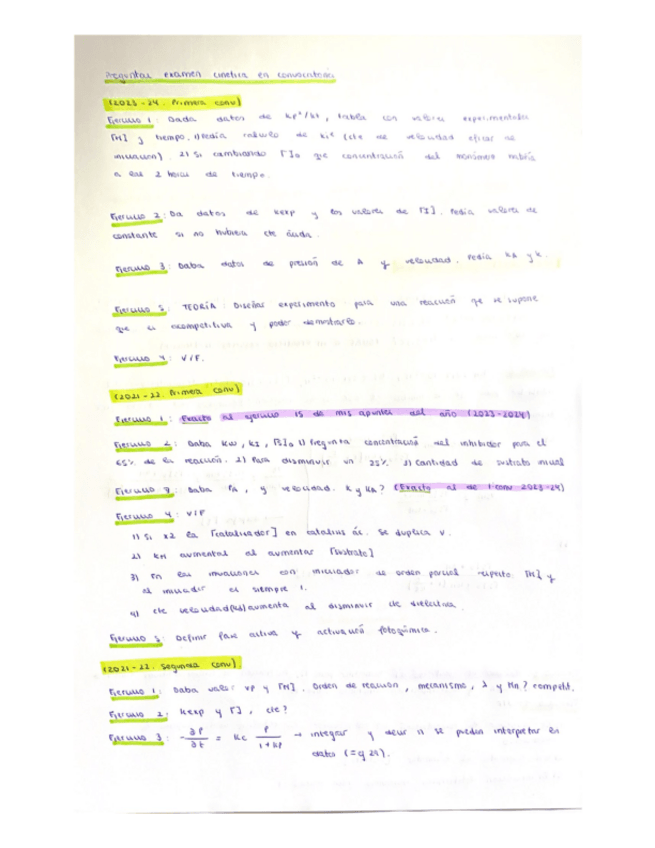 Preguntas examen cinetica en convocatoria
(2023-24. Primera conv)
Ejercicio 1: Daba datos de kp²/kt, tabla con valores experimentales
[M] y tiempo. 1) Pedia calculo de (cte de velocidad eficaz de
iniciación). 2) Si cambiando [I]o que concentración del monomero habria
a las 2 horas de tiempo.
Ejercicio 2: Da datos de kexp y los valores de [I]. Pedia valores de
constante si no hubiera cte ácida.
Ejercicio 3: Daba datos de presión de A y velocidad. Pedia kA y k.
Ejercicio 5: TEORÍA: Diseñar experimento para una reacción que se supone
que es acompetitiva y poder demostrarlo.
Ejercicio 4: V/F.
(2021-22. Primera conv)
Ejercicio 1: Exacto al ejercicio 15 de mis apuntes del año (2023-2024)
Ejercicio 2: Daba KM, KI, [S]o 1) Pregunta concentración del inhibidor para el
65% de la reacción. 2) Para disminuir un 25% 3) Cantidad de sustrato inicial
Ejercicio 3: Daba PA, y velocidad. K y KA? (Exacto al de 1 conv 2023-24)
Ejercicio 4: V/F
1) Si x2 la [catalizador] en catálisis ác. Se duplica v.
2) KM aumenta al aumentar [sustrato]
3) En las iniciaciones con iniciador de orden parcial respecto [M] y
al iniciador es siempre 1.
4) cte velocidad aumenta al disminuir cte dielectrica.
Ejercicio 5: Definir fase activa y activación fotoquímica.
(2021-22. Segunda conv).
Ejercicio 1: Daba valor vp y [M]. Orden de reacción, mecanismo, λ y Mn? competit.
Ejercicio 2: kexp y [], cte?
Ejercicio 3: -∂P/∂t = Kc P/1+KP → integrar y decir si se pueden interpretar los
datos (=q 21).